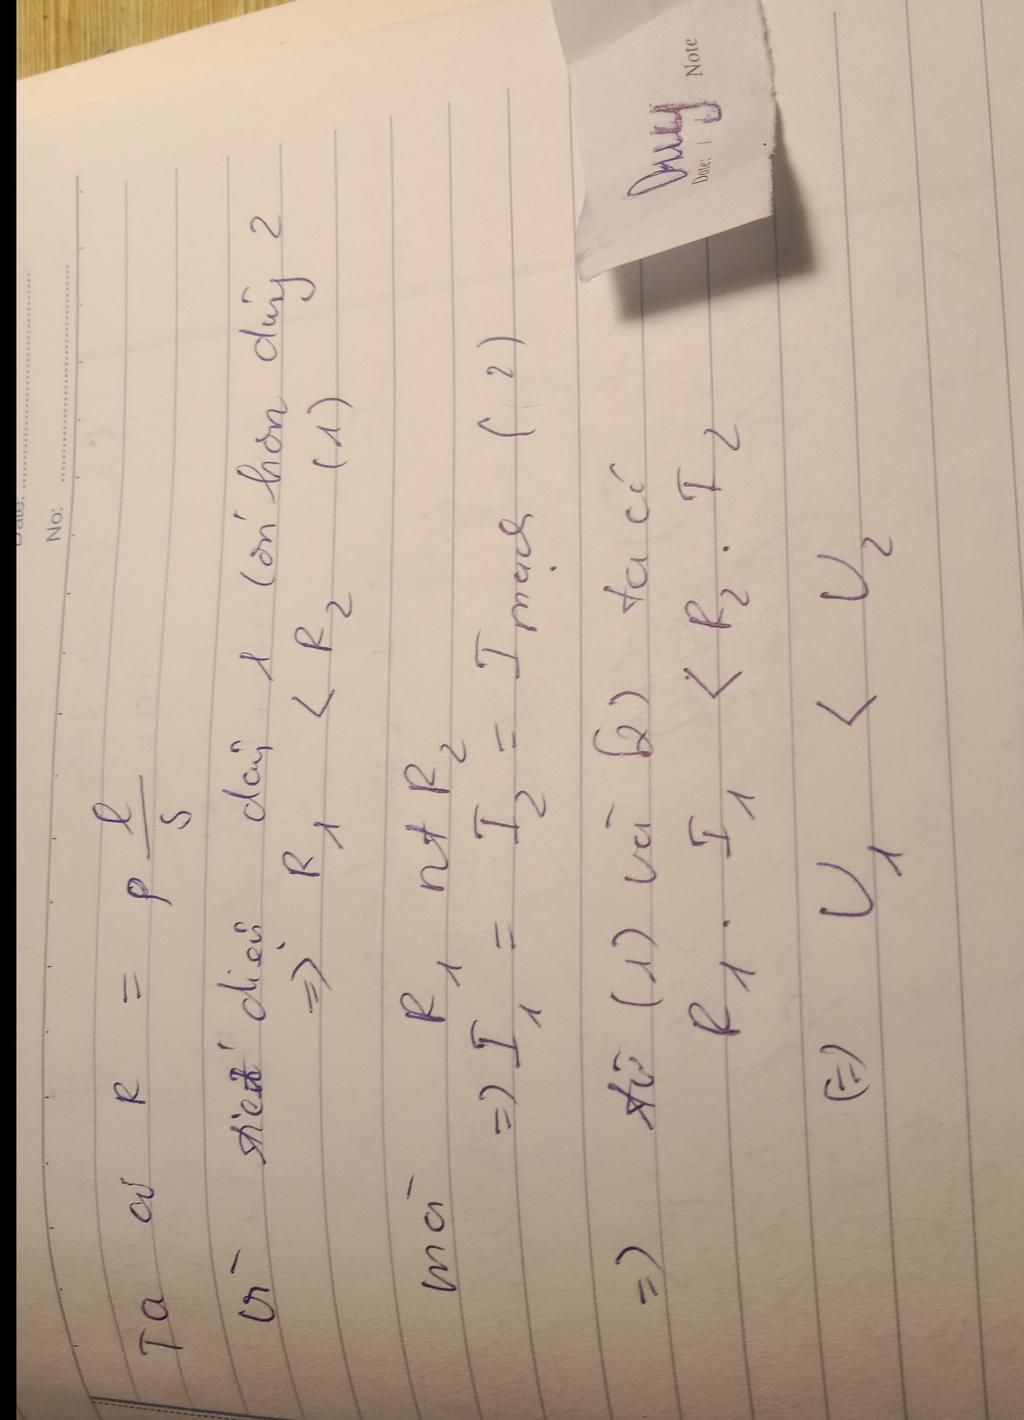 Date:
No:
Ta có R = ρ l/S
Vì tiết diện dây 1 lớn hơn dây 2
=> R1 < R2 (1)
mà R1 nt R2
=> I1 = I2 = Imạch (2)
=> từ (1) và (2) ta có
R1 . I1 < R2 . I2
(=) U1 < U2
Duy
Date: Note